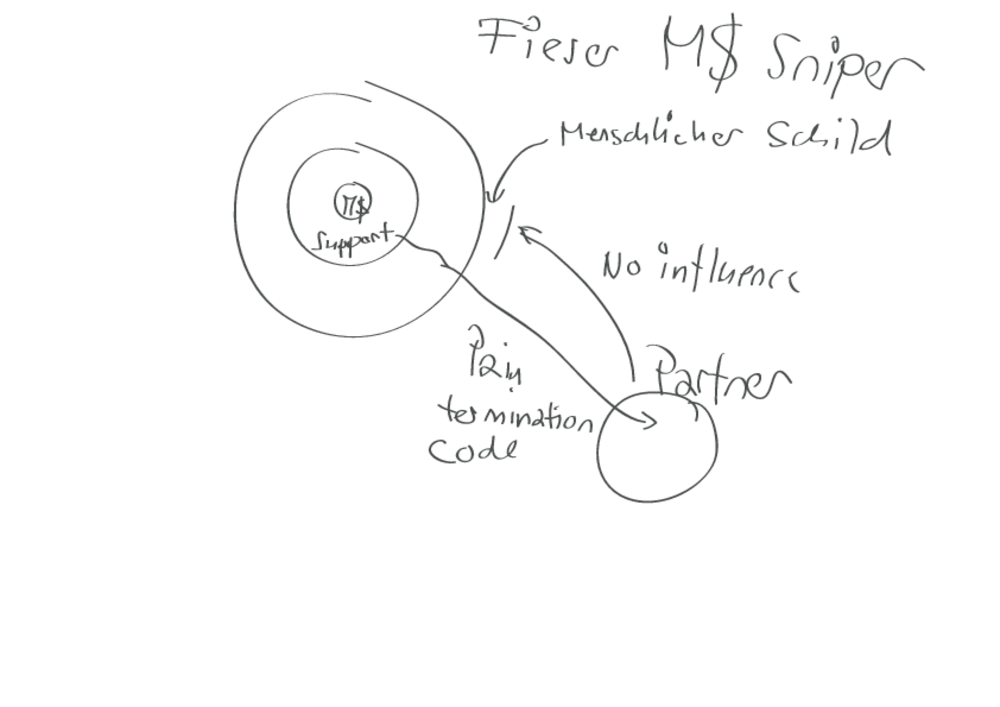 Fieser M$ Sniper
Menschlicher Schild
M$
Support
No influence
Pain
termination
code
Partner